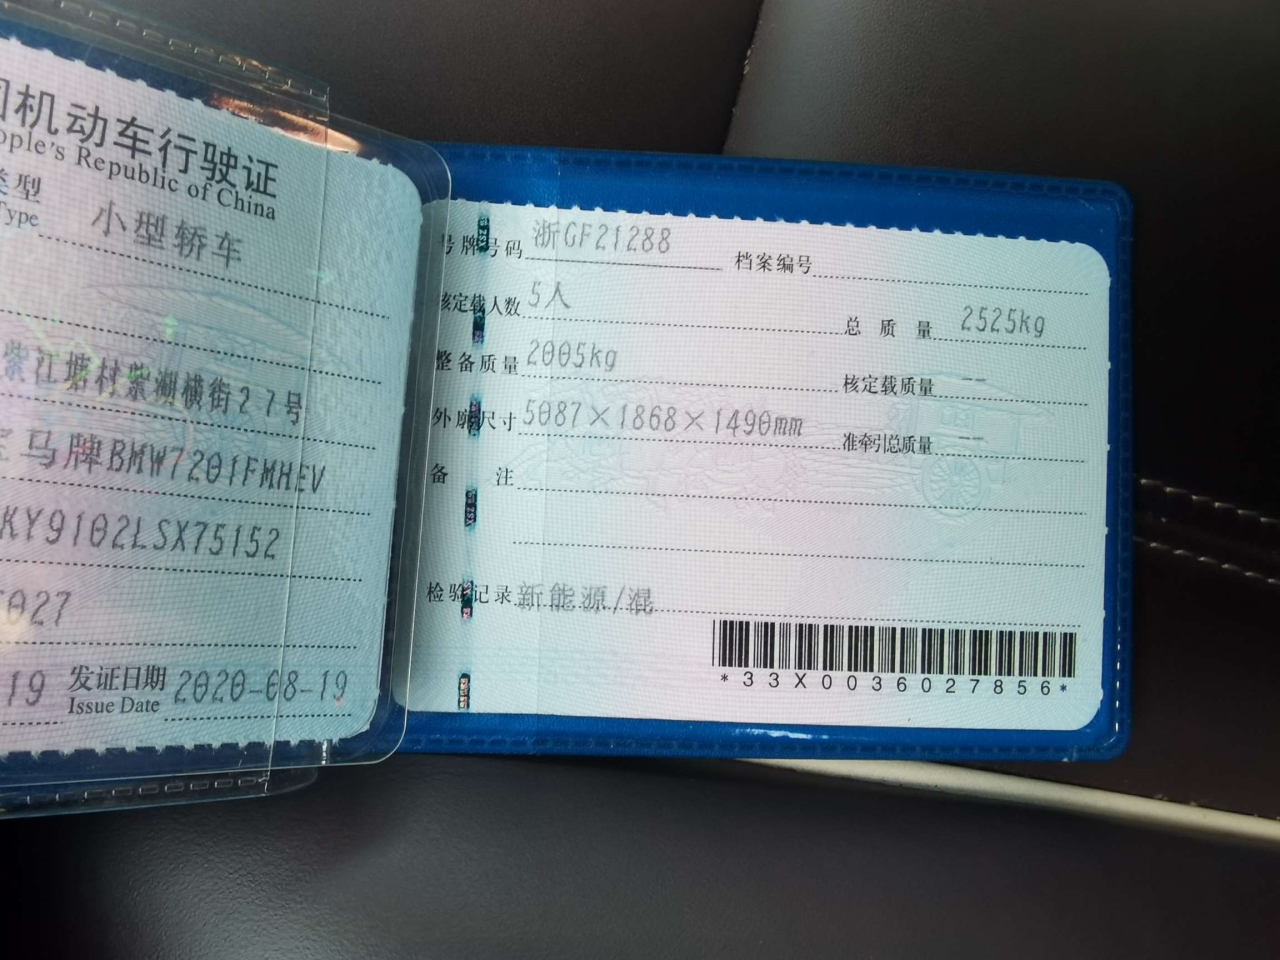 机动车行驶证
ople's Republic of China
类型 小型轿车
Type
紫江塘村紫湖横街27号
宝马牌BMW7201FMHEV
KY9102LSX75152
027
19 发证日期 2020-08-19
Issue Date
号牌号码 浙GF21288 档案编号
核定载人数 5人 总质量 2525kg
整备质量 2005kg 核定载质量 --
外廓尺寸 5087×1868×1490mm 准牵引总质量 --
备注
检验记录 新能源/混
*33X0036027856*